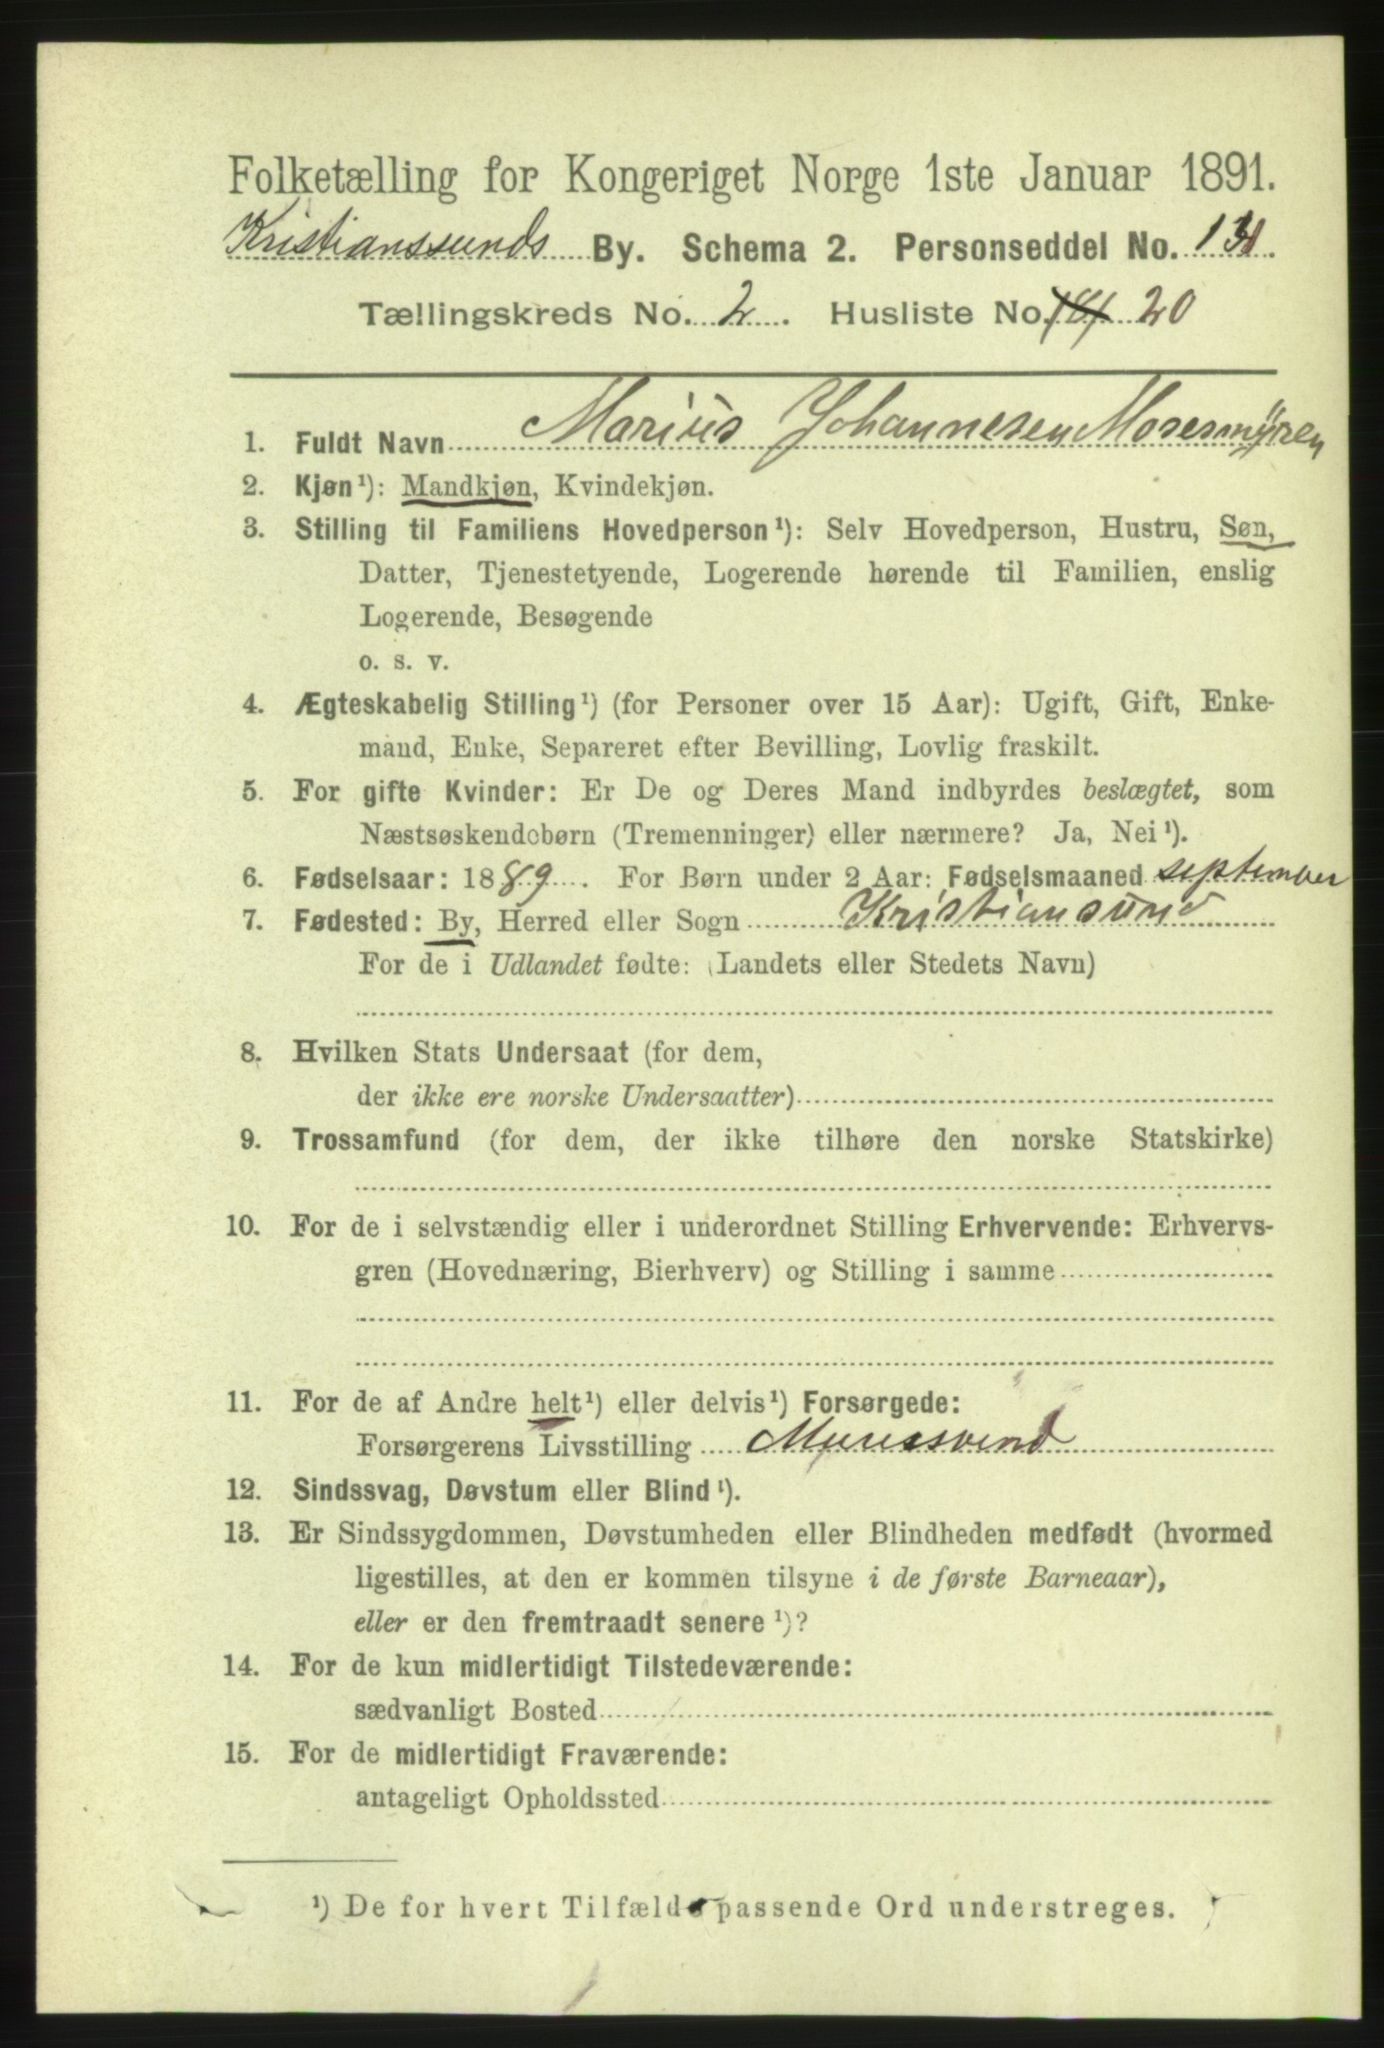 Folketælling for Kongeriget Norge 1ste Januar 1891.
Kristianssunds By. Schema 2. Personseddel No.
Tællingskreds No. 2. Husliste No. 181 20
1. Fuldt Navn Marius Johannesen Mosesmÿren
2. Kjøn¹): Mandkjøn, Kvindekjøn.
3. Stilling til Familiens Hovedperson¹): Selv Hovedperson, Hustru, Søn,
Datter, Tjenestetyende, Logerende hørende til Familien, enslig
Logerende, Besøgende
o. s. v.
4. Ægteskabelig Stilling¹) (for Personer over 15 Aar): Ugift, Gift, Enke-
mand, Enke, Separeret efter Bevilling, Lovlig fraskilt.
5. For gifte Kvinder: Er De og Deres Mand indbyrdes beslægtet, som
Næstsøskendebørn (Tremenninger) eller nærmere? Ja, Nei¹).
6. Fødselsaar: 1889. For Børn under 2 Aar: Fødselsmaaned september
7. Fødested: By, Herred eller Sogn Kristiansund
For de i Udlandet fødte: (Landets eller Stedets Navn)
8. Hvilken Stats Undersaat (for dem,
der ikke ere norske Undersaatter)
9. Trossamfund (for dem, der ikke tilhøre den norske Statskirke)
10. For de i selvstændig eller i underordnet Stilling Erhvervende: Erhvervs-
gren (Hovednæring, Bierhverv) og Stilling i samme
11. For de af Andre helt¹) eller delvis¹) Forsørgede:
Forsørgerens Livsstilling Muressvend
12. Sindssvag, Døvstum eller Blind¹).
13. Er Sindssygdommen, Døvstumheden eller Blindheden medfødt (hvormed
ligestilles, at den er kommen tilsyne i de første Barneaar),
eller er den fremtraadt senere¹)?
14. For de kun midlertidigt Tilstedeværende:
sædvanligt Bosted
15. For de midlertidigt Fraværende:
antageligt Opholdssted
¹) De for hvert Tilfælde passende Ord understreges.